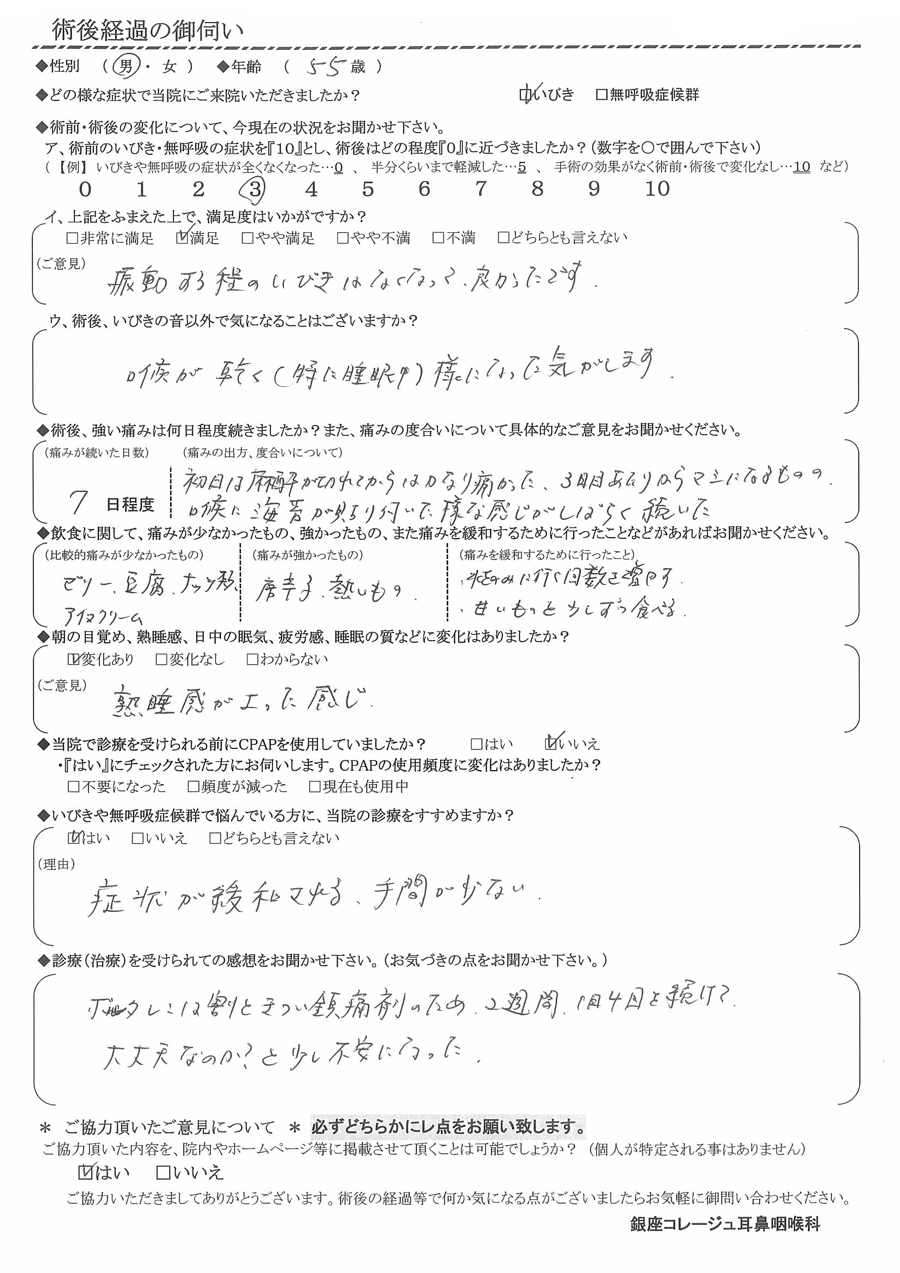 術後経過の御伺い
◆性別 （ 男 ・ 女 ） ◆年齢 （ 55 歳 ）
◆どの様な症状で当院にご来院いただきましたか？ ☑いびき □無呼吸症候群
◆術前・術後の変化について、今現在の状況をお聞かせ下さい。
ア、術前のいびき・無呼吸の症状を『10』とし、術後はどの程度『0』に近づきましたか？（数字を○で囲んで下さい）
（【例】 いびきや無呼吸の症状が全くなくなった…0 、 半分くらいまで軽減した…5 、 手術の効果がなく術前・術後で変化なし…10 など）
0 1 2 3 4 5 6 7 8 9 10
イ、上記をふまえた上で、満足度はいかがですか？
□非常に満足 ☑満足 □やや満足 □やや不満 □不満 □どちらとも言えない
（ご意見）
振動する程のいびきはなくなって、良かったです.
ウ、術後、いびきの音以外で気になることはございますか？
口喉が乾く（特に睡眠中）様になった気がします.
◆術後、強い痛みは何日程度続きましたか？また、痛みの度合いについて具体的なご意見をお聞かせください。
（痛みが続いた日数） （痛みの出方、度合いについて）
初日は麻酔が切れてからはかなり痛かった、3日目あたりからマシになるものの.
7 日程度
喉に海苔が貼り付いた様な感じがしばらく続いた
◆飲食に関して、痛みが少なかったもの、強かったもの、また痛みを緩和するために行ったことなどがあればお聞かせください。
（比較的痛みが少なかったもの） （痛みが強かったもの） （痛みを緩和するために行ったこと）
ゼリー、豆腐、 唐辛子、熱いもの.
アイスクリーム ・甘いものを少しずつ食べる.
◆朝の目覚め、熟睡感、日中の眠気、疲労感、睡眠の質などに変化はありましたか？
☑変化あり □変化なし □わからない
（ご意見）
熟睡感が上った感じ.
◆当院で診療を受けられる前にCPAPを使用していましたか？ □はい ☑いいえ
・『はい』にチェックされた方にお伺いします。CPAPの使用頻度に変化はありましたか？
□不要になった □頻度が減った □現在も使用中
◆いびきや無呼吸症候群で悩んでいる方に、当院の診療をすすめますか？
☑はい □いいえ □どちらとも言えない
（理由）
症状が緩和される、手間が少ない.
◆診療（治療）を受けられての感想をお聞かせ下さい。（お気づきの点をお聞かせ下さい。）
ボルタレンは割ときつい鎮痛剤のため、2週間、1日4回を続けて
大丈夫なのか？と少し不安になった.
＊ ご協力頂いたご意見について ＊ 必ずどちらかにレ点をお願い致します。
ご協力頂いた内容を、院内やホームページ等に掲載させて頂くことは可能でしょうか？（個人が特定される事はありません）
☑はい □いいえ
ご協力いただきましてありがとうございます。術後の経過等で何か気になる点がございましたらお気軽に御問い合わせください。
銀座コレージュ耳鼻咽喉科